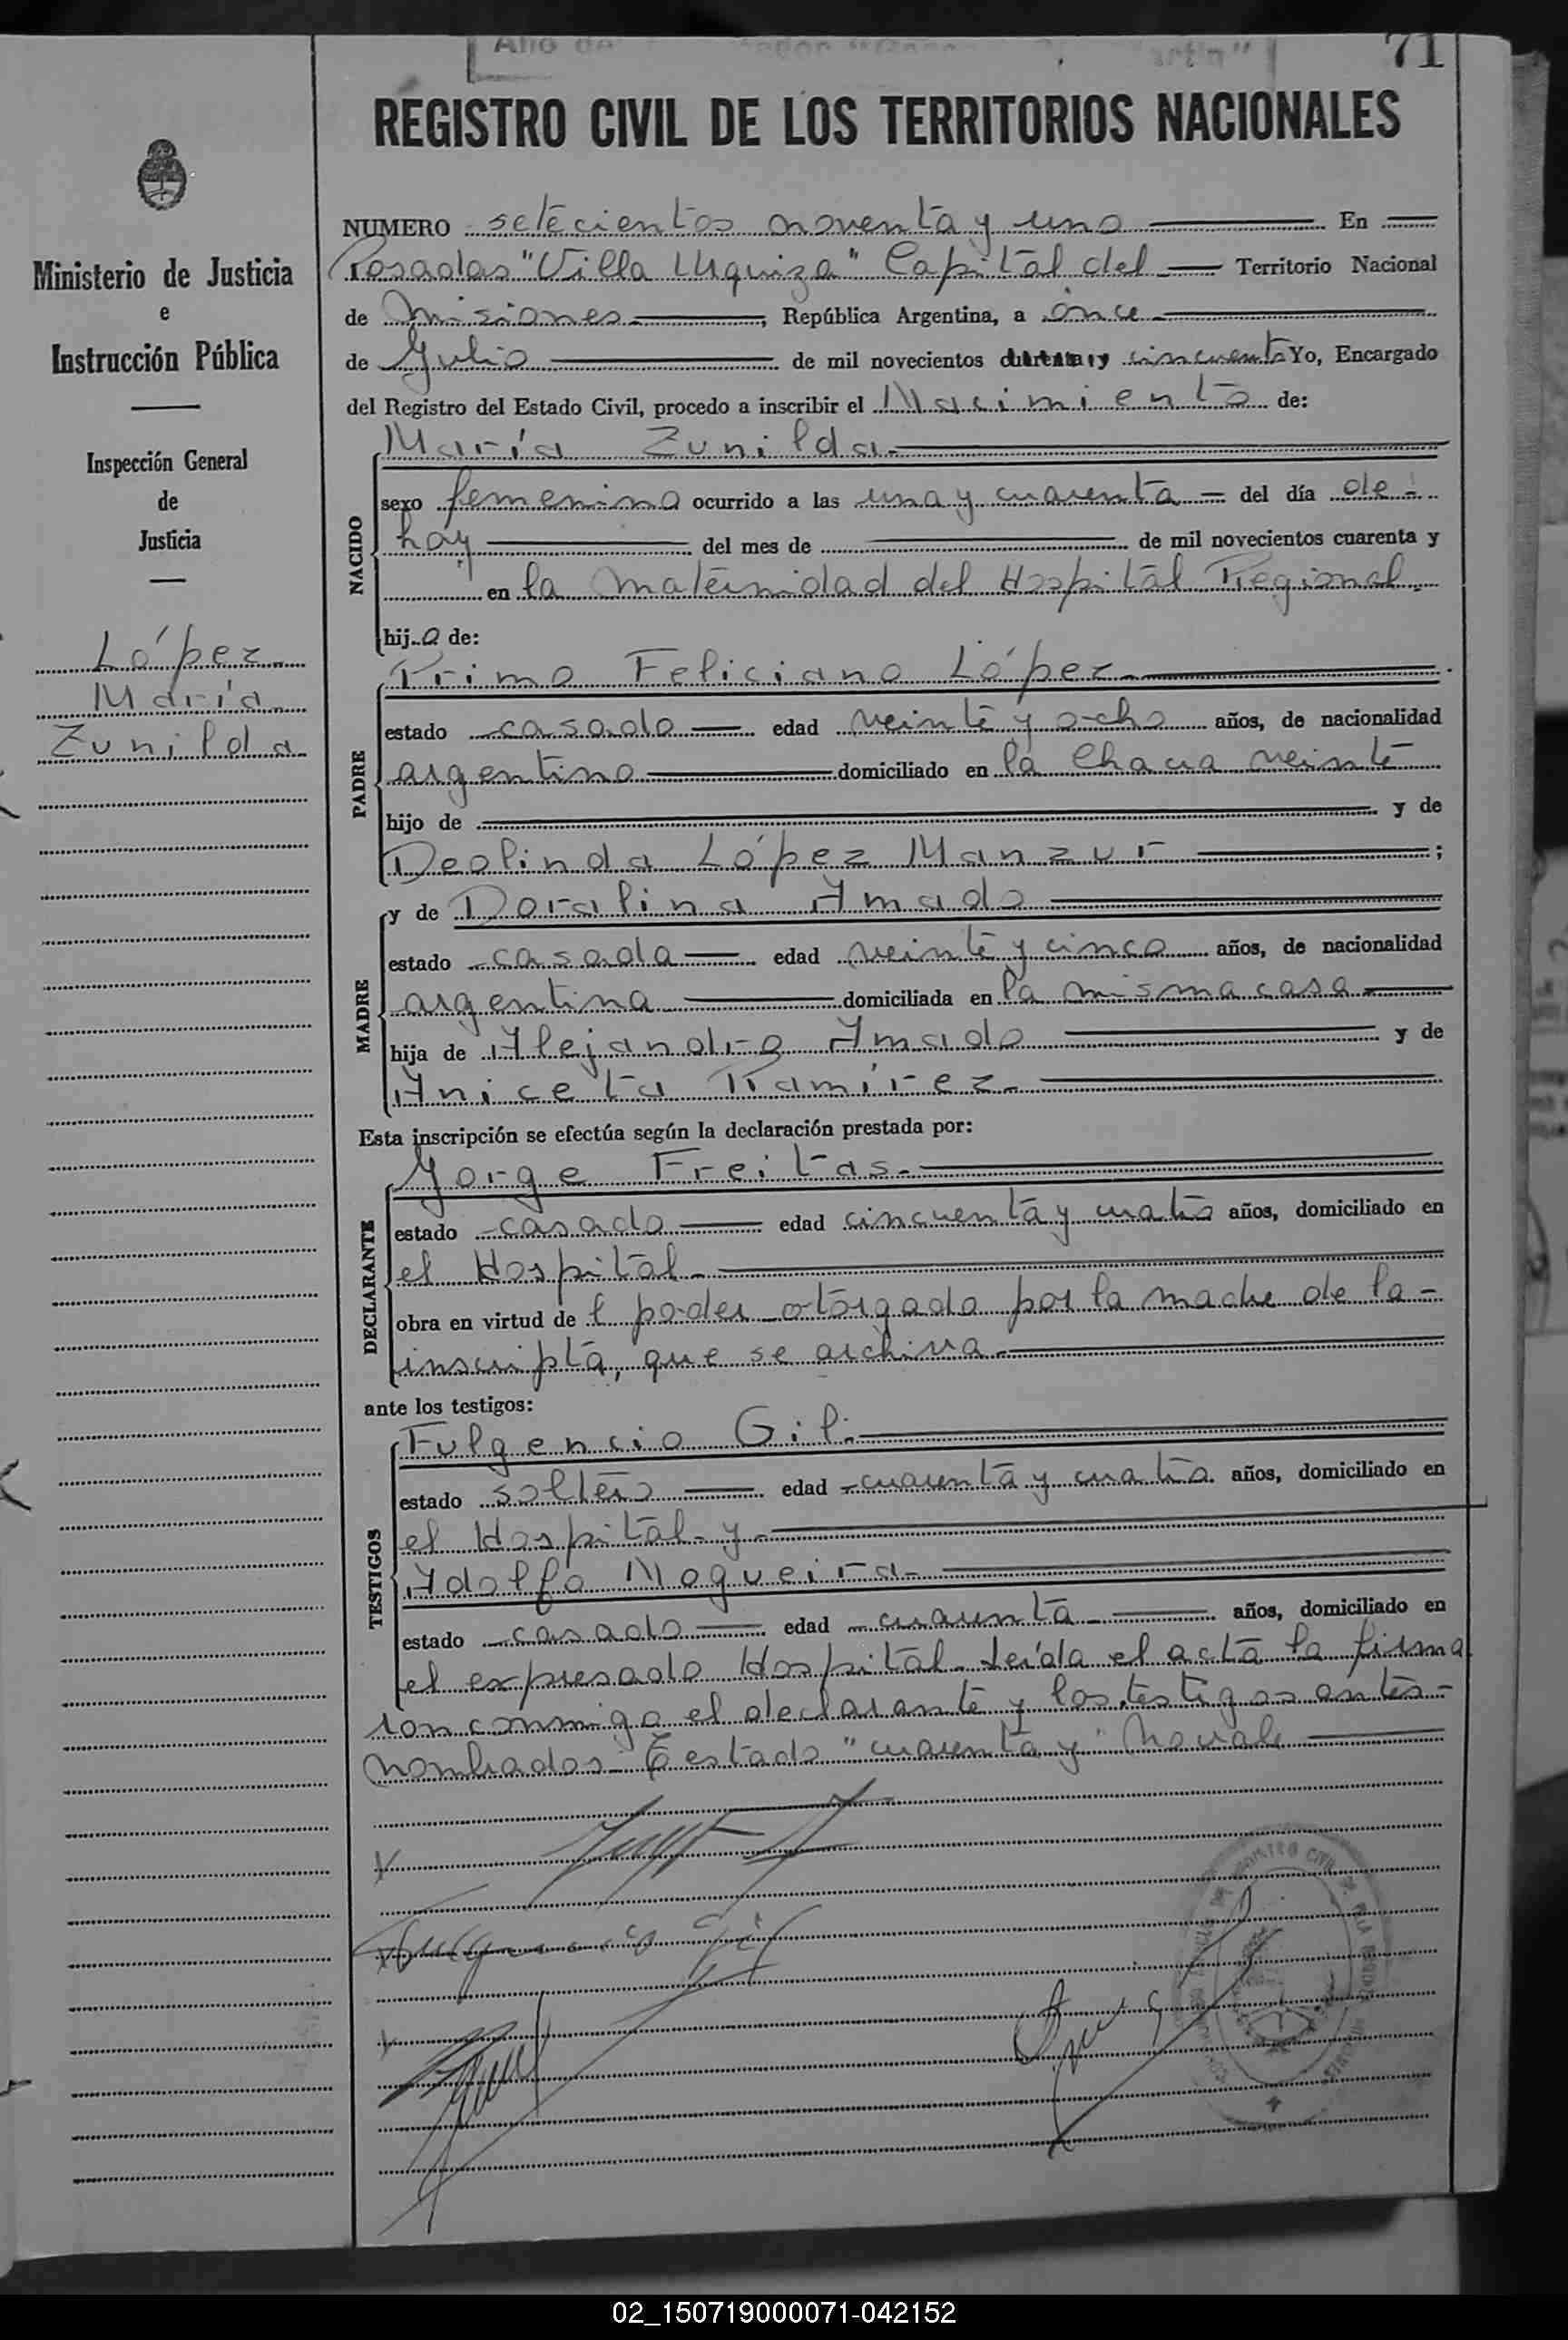 71
REGISTRO CIVIL DE LOS TERRITORIOS NACIONALES
Ministerio de Justicia
e
Instrucción Pública
Inspección General
de
Justicia
López
María
Zunilda
NUMERO setecientos noventa y uno En
Posadas "Villa Urquiza" Capital del Territorio Nacional
de Misiones, República Argentina, a once
de Julio de mil novecientos cuarenta y cincuenta Yo, Encargado
del Registro del Estado Civil, procedo a inscribir el Nacimiento de:
NACIDO
María Zunilda
sexo femenino ocurrido a las una y cuarenta del día de
hoy del mes de de mil novecientos cuarenta y
en la Maternidad del Hospital Regional
hija de:
PADRE
Primo Feliciano López
estado casado edad veinte y ocho años, de nacionalidad
argentino domiciliado en la Chacra veinte
hijo de y de
Deolinda López Manzur ;
MADRE
y de Doralina Amado
estado casada edad veinte y cinco años, de nacionalidad
argentina domiciliada en la misma casa
hija de Alejandro Amado y de
Aniceta Ramírez
Esta inscripción se efectúa según la declaración prestada por:
DECLARANTE
Jorge Freitas
estado casado edad cincuenta y cuatro años, domiciliado en
el Hospital
obra en virtud de l poder otorgado por la madre de la
inscripta, que se archiva
ante los testigos:
TESTIGOS
Fulgencio Gil
estado soltero edad cuarenta y cuatro años, domiciliado en
el Hospital y
Adolfo Nogueira
estado casado edad cuarenta años, domiciliado en
el expresado Hospital. Leída el acta la firma
ron conmigo el declarante y los testigos antes
nombrados. Testado "cuarenta y" No vale
Fulgencio Gil
02_150719000071-042152